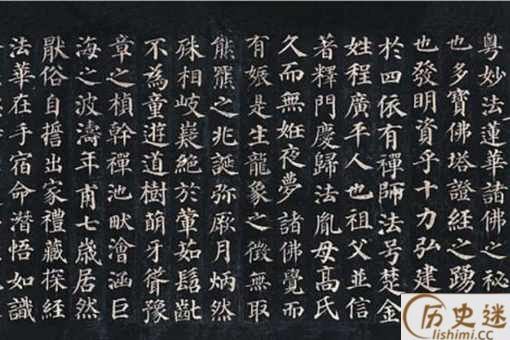 粵妙法蓮華諸佛之秘
也多寶佛塔證經之踴
也發明資乎十力弘建
於四依有禪師法号楚金
姓程廣平人也祖父並信
著釋門慶歸法胤母高氏
久而無姙夜夢諸佛覺而
有娠是生龍象之徵無取
熊羆之兆誕弥厥月炳然
殊相岐嶷絕於葷茹髫齓
不為童遊道樹萌牙聳豫
章之楨幹禪池畎澮涵巨
海之波濤年甫七歲居然
厭俗自誓出家禮藏探經
法華在手宿命潛悟如識
历史迷
lishimi.cc